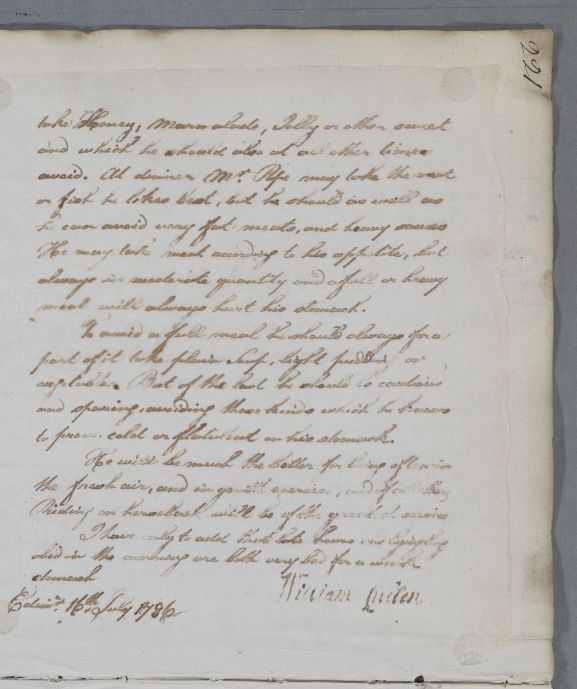 221
take Honey, Marmalade, Jelly or other sweet
and which he should also at all other times
avoid. At dinner Mr. Pope may take the meat
or fish he likes best, but he should as well as
he can avoid very fat meats, and heavy sauces
He may take meat according to his appetite, but
always in moderate quantity and a full or heavy
meal will always hurt his stomach.
To avoid a full meal he should always for a
part of it take plain Soup, light pudding or
vegetables. But of the last he should be cautious
and sparing, avoiding those kinds which he knows
to prove cold or flatulent on his stomach.
He will be much the better for being often in
the fresh air, and in gentle exercise, and if
Riding on horseback will be of the greatest service
I have only to add that late hours and lying long
abed in the morning are both very bad for a weak
stomach
William Cullen
Edinr. 16th July 1786